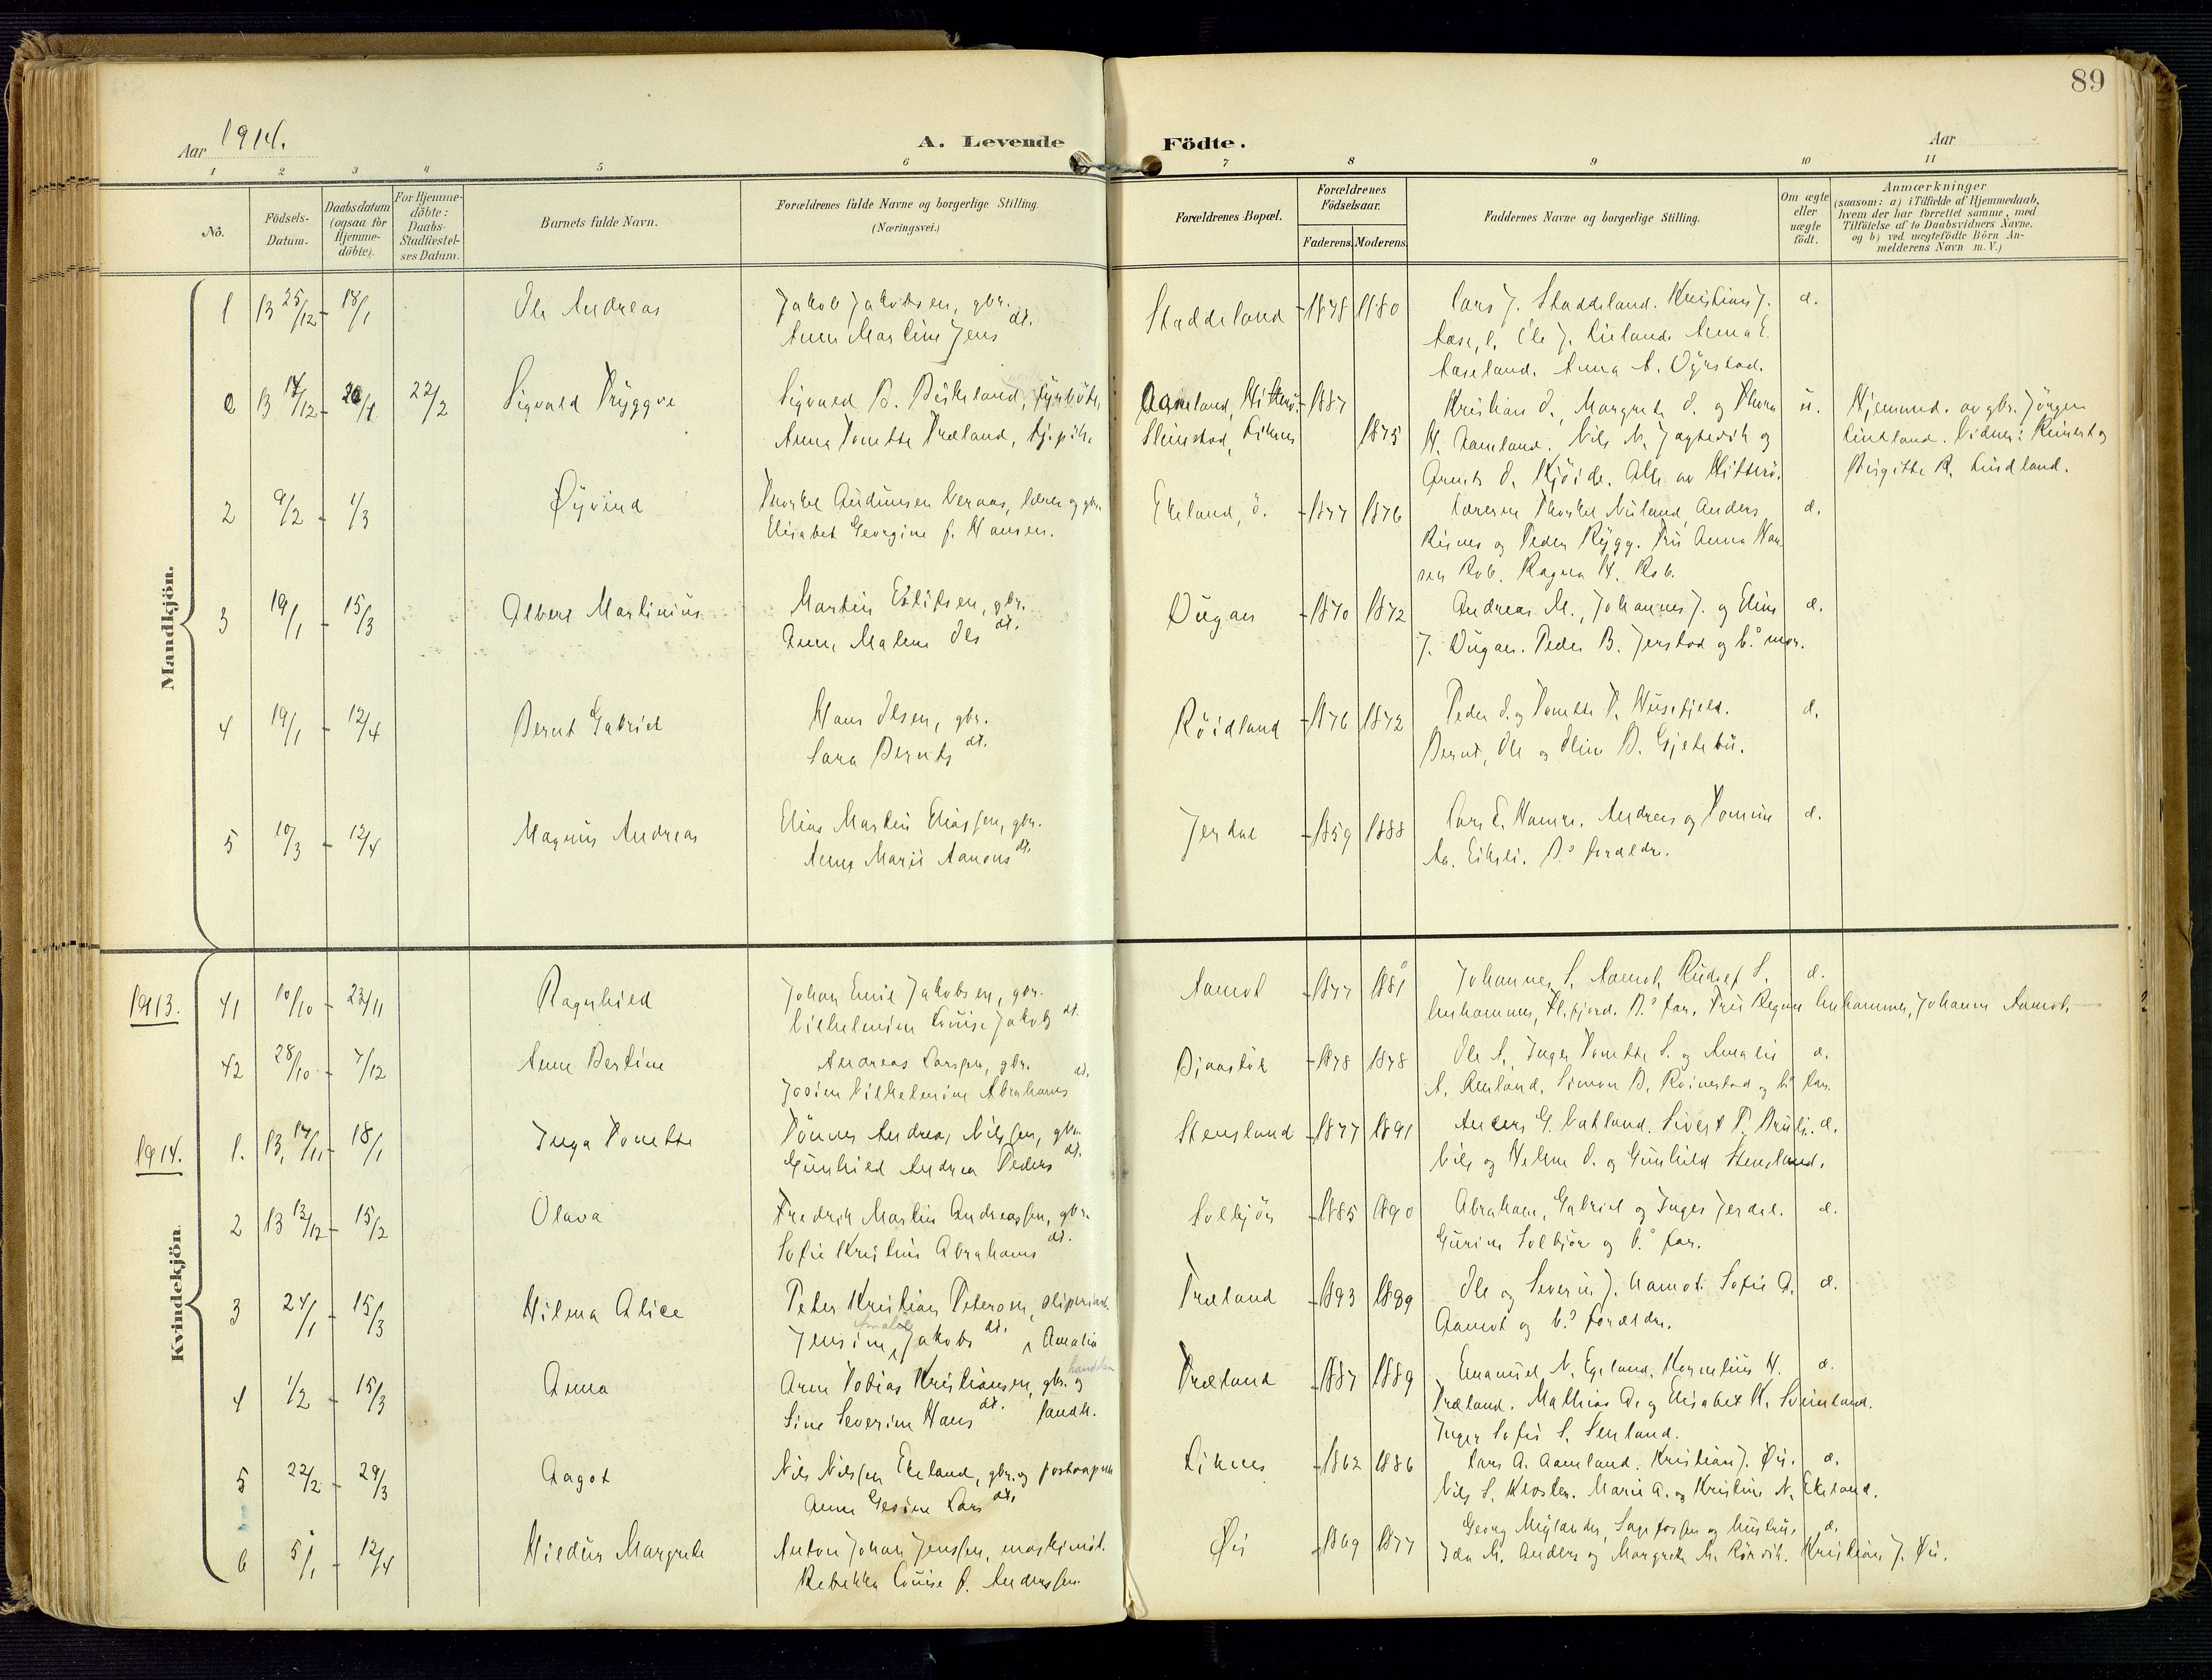 89
Aar 1914.
A. Levende Födte.
Aar
1 2 3 4 5 6 7 8 9 10 11
No.
Födsels-Datum.
Daabsdatum (ogsaa for Hjemme-döbte).
For Hjemme-döbte: Daabs-Stadfæstel-ses Datum.
Barnets fulde Navn.
Forældrenes fulde Navne og borgerlige Stilling.
(Næringsvei.)
Forældrenes Bopæl.
Forældrenes Födselsaar.
Faderens. Moderens.
Faddernes Navne og borgerlige Stilling.
Om ægte eller uægte födt.
Anmærkninger
(saasom: a) i Tilfælde af Hjemmedaab, hvem der har forrettet samme, med Tilföielse af to Daabsvidners Navne, og b) ved uægtefödte Börn Anmelderens Navn m. V.)
Mandkjön.
1 13 25/12 - 18/1 Ole Andreas Jakob Jakobsen, gbr. Staddeland 1878 1880 Lars J. Staddeland. Kristians J.
Anne Martine Jens dt. Aase, Ole J. Anna E.
Aaseland. Anna A. Dyrstad.
13 14/12 - 22/2 Sigvald Tryggve Sigvald B. Birkeland, fyrböter, Aamland, Hitterö. 1887 Kristian O., Margrete O. og Thora u. Hjemmd. av gbr. Jörgen
Anna Tonette Træland, tj.pike 1875 H. Aamland. Nils N. Jagtevik og Lindland. Vidner: Reinert og
O. Alle av Hitterö. Birgitte R. Lindland.
2 9/2 - 1/3 Öyvind Thorkel Audunsen Veraas, lærer og gbr. Ekeland, ö. 1877 1876 Lærerne Thorkel Nuland, Anders
Elisabet Georgine f. Hansen. Risnes og Peder Rygg. Fru Anna Han
sen Rob. Ragna H. Rob.
3 19/1 - 15/3 Albert Martinius Martin gbr. Dugan 1870 1872 Andreas M., Johannes J. og Eline
Anne Malene Ols dt. J. Dugan. Peder B. Jerstad og b.s mor.
4 19/1 - 12/4 Bernt Gabriel Hans Olsen, gbr. Röidland 1876 1872 Peder O. og Tonette P. Husefjeld.
Sara Bernts dt. Bernt, Ole og Oline B. Gjetebu.
5 10/3 - 12/4 Magnus Andreas Elias Martin Eliassen, gbr. Jerdal 1859 1888 Lars E. Hamre. Andreas og Tomine
Anne Marie Aanons dt. Aa. Eikeli. B.s forældre.
1913. 41 10/10 - 23/11 Ragnhild Johan Emil Jakobsen, gbr. Aamot 1877 1881 Johannes S. Aamot, Rudolf S.
Vilhelmine Louise Jakobs dt. Fl.fjord. B.s far. Fru Johanne Aamot.
42 28/10 - 7/12 Anne Bertine Andreas Larssen, gbr. 1878 1878 Ole A., Inger Tonette S. og Amalie
Josine Vilhelmine Abrahams dt. Simon B. Röinestad og b.s far.
1914. Kvindekjön.
1. 13, 17/11 - 18/1 Inga Tonette Tönnes Andreas Nilssen, gbr. Stensland 1877 1891 Anders G. Vatland. Sivert T. Bruli.
Gunhild Andrea Peders dt. Nils og Helene O. og Gunhild Stensland.
2 13 13/12 - 15/2 Olava Fredrik Martin Andreassen, gbr. Solbjör 1885 1890 Abraham, Gabriel og Inger Jerdal.
Sofie Kristine Abrahams dt. Gurine Solbjör og b.s far.
3 24/1 - 15/3 Hilma Alice Peter Kristian Peterson, Træland 1893 1889 Ole og Severin J. Aamot. Sofie A.
Jensine Jakobs dt. Amalia Aamot og b.s forældre.
4 1/2 - 15/3 Anna Arne Tobias Kristiansen, gbr. og handelsm Træland 1887 1889 Emanuel N. Egeland. Kornelius H.
Sine Severine Hans dt. landh. Træland. Mathias A. og Elisabet H. Sveinland.
Inger Sofie S.
5 22/2 - 29/3 Aagot Nils Nilssen Ekeland, gbr. og postaapner Liknes 1862 1886 Lars A. Aamland. Kristian J. Öie.
Anne Gesine Lars dt. Nils S. Kloster. Marie A. og Kristine N. Ekeland.
6 5/1 - 12/4 Hildur Margrete Anton Johan Jenssen, maskinist. Öie 1869 1877 Georg og hustru,
Rebekka Louise f. Anderssen. Ida M. Anders og Margrete M. Kristian J. Öie.